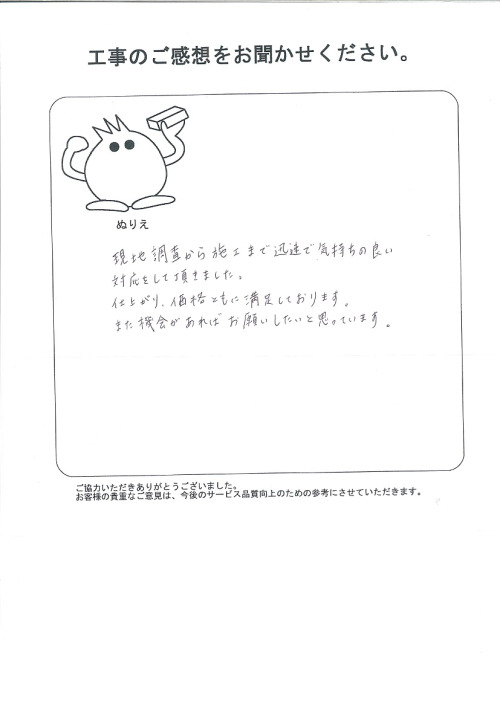 工事のご感想をお聞かせください。
ぬりえ
現地調査から施工まで迅速で気持ちの良い
対応をして頂きました。
仕上がり、価格ともに満足しております。
また機会があればお願いしたいと思っています。
ご協力いただきありがとうございました。
お客様の貴重なご意見は、今後のサービス品質向上のための参考にさせていただきます。